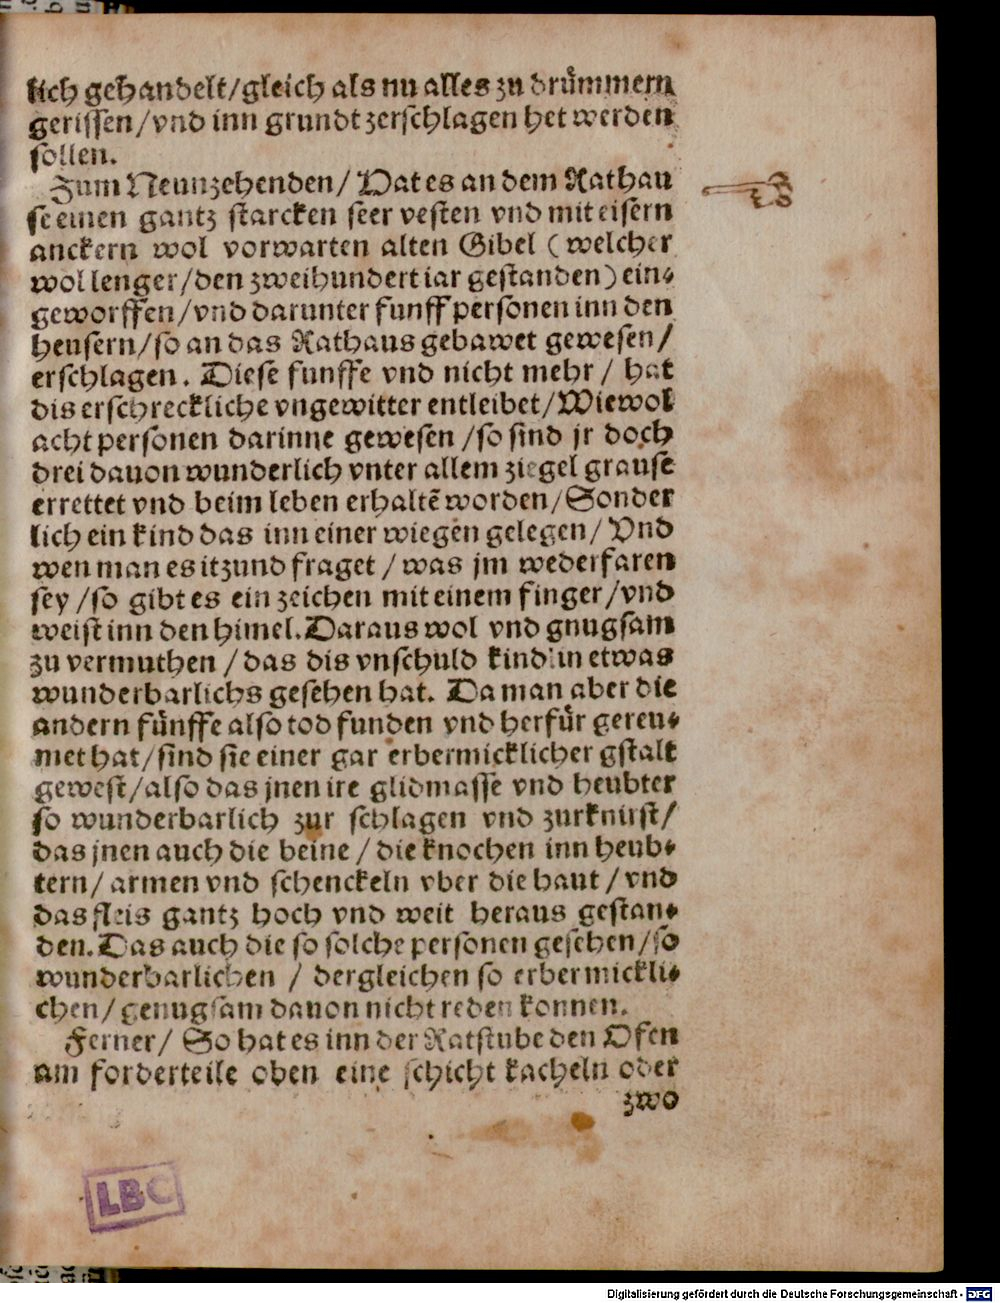 lich gehandelt/gleich als nu alles zu drům̃ern
gerissen/vnd inn grundt zerschlagen het werden
sollen.
Zum Neunzehenden/ Hat es an dem Rathau
se einen gantz starcken seer vesten vnd mit eisern
anckern wol vorwarten alten Gibel (welcher
wol lenger/den zweihundert iar gestanden) ein⸗
geworffen/vnd darunter funff personen inn den
heusern/so an das Rathaus gebawet gewesen/
erschlagen. Diese funffe vnd nicht mehr/ hat
dis erschreckliche vngewitter entleibet/Wiewol
acht personen darinne gewesen/so sind jr doch
drei dauon wunderlich vnter allem ziegel grause
errettet vnd beim leben erhaltē worden/Sonder
lich ein kind das inn einer wiegen gelegen/ Vnd
wen man es itzund fraget/was jm wederfaren
sey/so gibt es ein zeichen mit einem finger/vnd
weist inn den himel. Daraus wol vnd gnugsam
zu vermuthen/das dis vnschuld kindlin etwas
wunderbarlichs gesehen hat. Da man aber die
andern fůnffe also tod funden vnd herfůr gereu⸗
met hat/sind sie einer gar erbermicklicher gstalt
gewest/also das jnen ire glidmasse vnd heubter
so wunderbarlich zur schlagen vnd zurknirst/
das jnen auch die beine/die knochen inn heub⸗
tern/armen vnd schenckeln vber die haut/vnd
das fleis gantz hoch vnd weit heraus gestan⸗
den. Das auch die so solche personen gesehen/so
wunderbarlichen / dergleichen so erbermickli⸗
chen/genugsam dauon nicht reden konnen.
Ferner/ So hat es inn der Ratstube den Ofen
am forderteile oben eine schicht kacheln oder
zwo
LBC
Digitalisierung gefördert durch die Deutsche Forschungsgemeinschaft - DFG